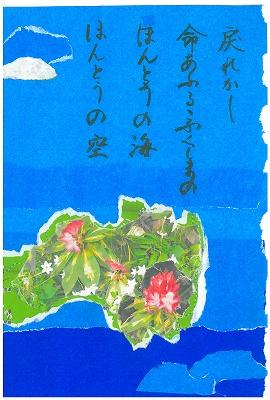 戻れかし
命あふるふくしまの
ほんとうの海
ほんとうの空